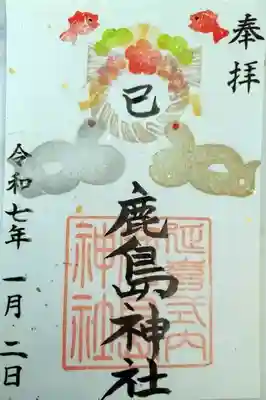 奉拝
巳
鹿島神社
延喜式内
鹿島
神社
令和七年 一月 二日